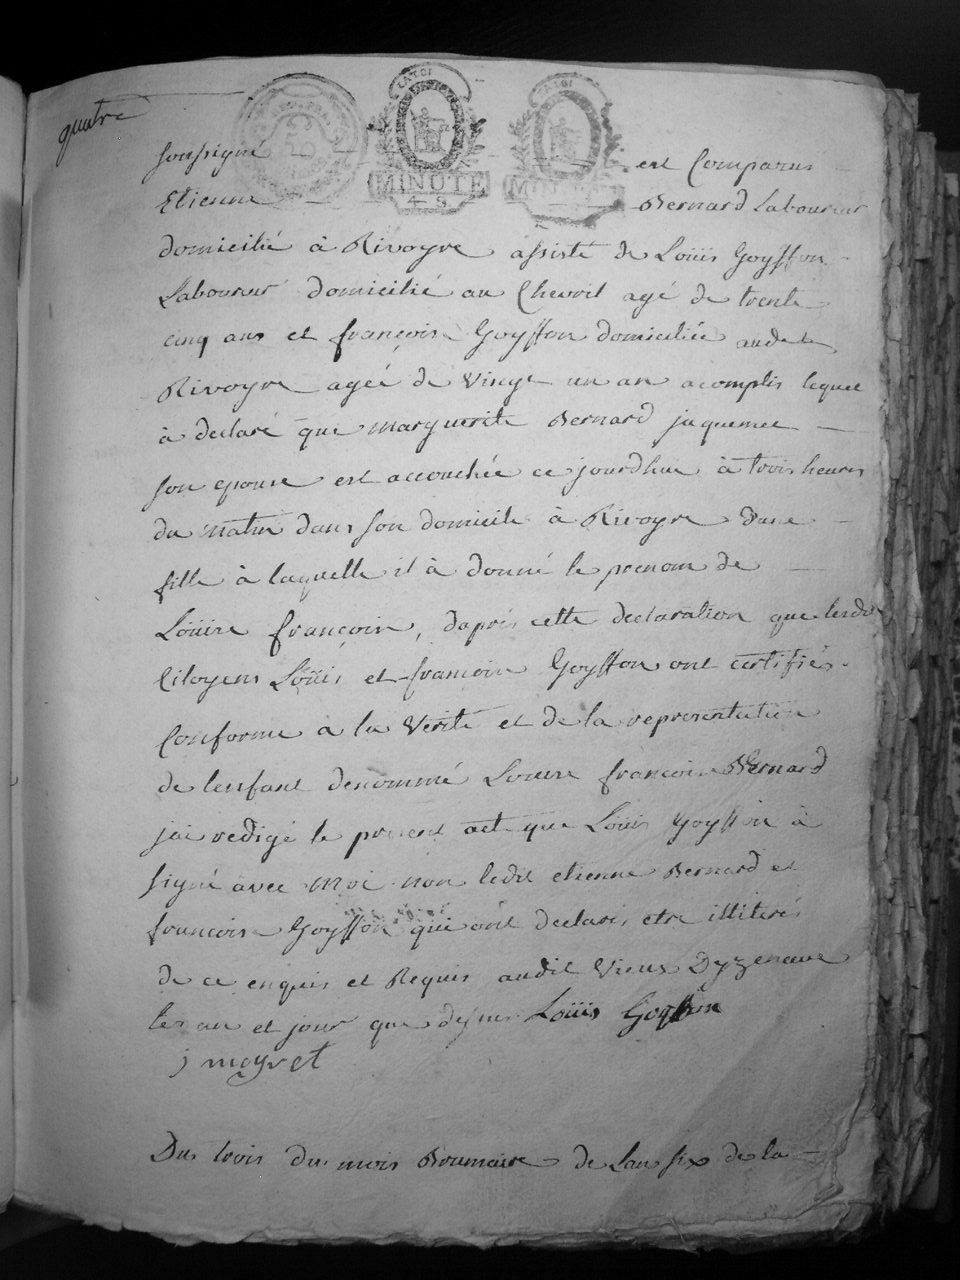 quatre
LA LOI
LA LOI
MINUTE
MINUTE
4 S
soussigné est Comparus
Etienne Bernard Laboureur
domicilié à Rivoyre assisté de Loüis Goyffon
Laboureur domicilié au Chevril agé de trente
cinq ans et françoise Goyffon domiciliée audit
Rivoyre ageé de vingt un an acomplis lequel
à declaré que marguerite Bernard jaquemet
son epouse est accouchée ce jourdhui à trois heures
du matin dans son domicile à Rivoyre d'une
fille à laquelle il à donné le prenom de
Loüise françoise, daprés cette declaration que lesdts
Citoyens Loüis et françoise Goyffon ont certifiés
Conforme a la Verité et de la representation
de lenfant denommé Louise françoise Bernard
jai redigé le present act que Loüis Goyffon à
signé avec moi non ledit etienne Bernard et
françoise Goyffon qui ont declarés etre illiterés
de ce enquis et Requis audit Vieux Dyzenave
les an et jour que dessus Loüis Goyffon
j mayret
Du trois du mois Brumaire de Lan six de la